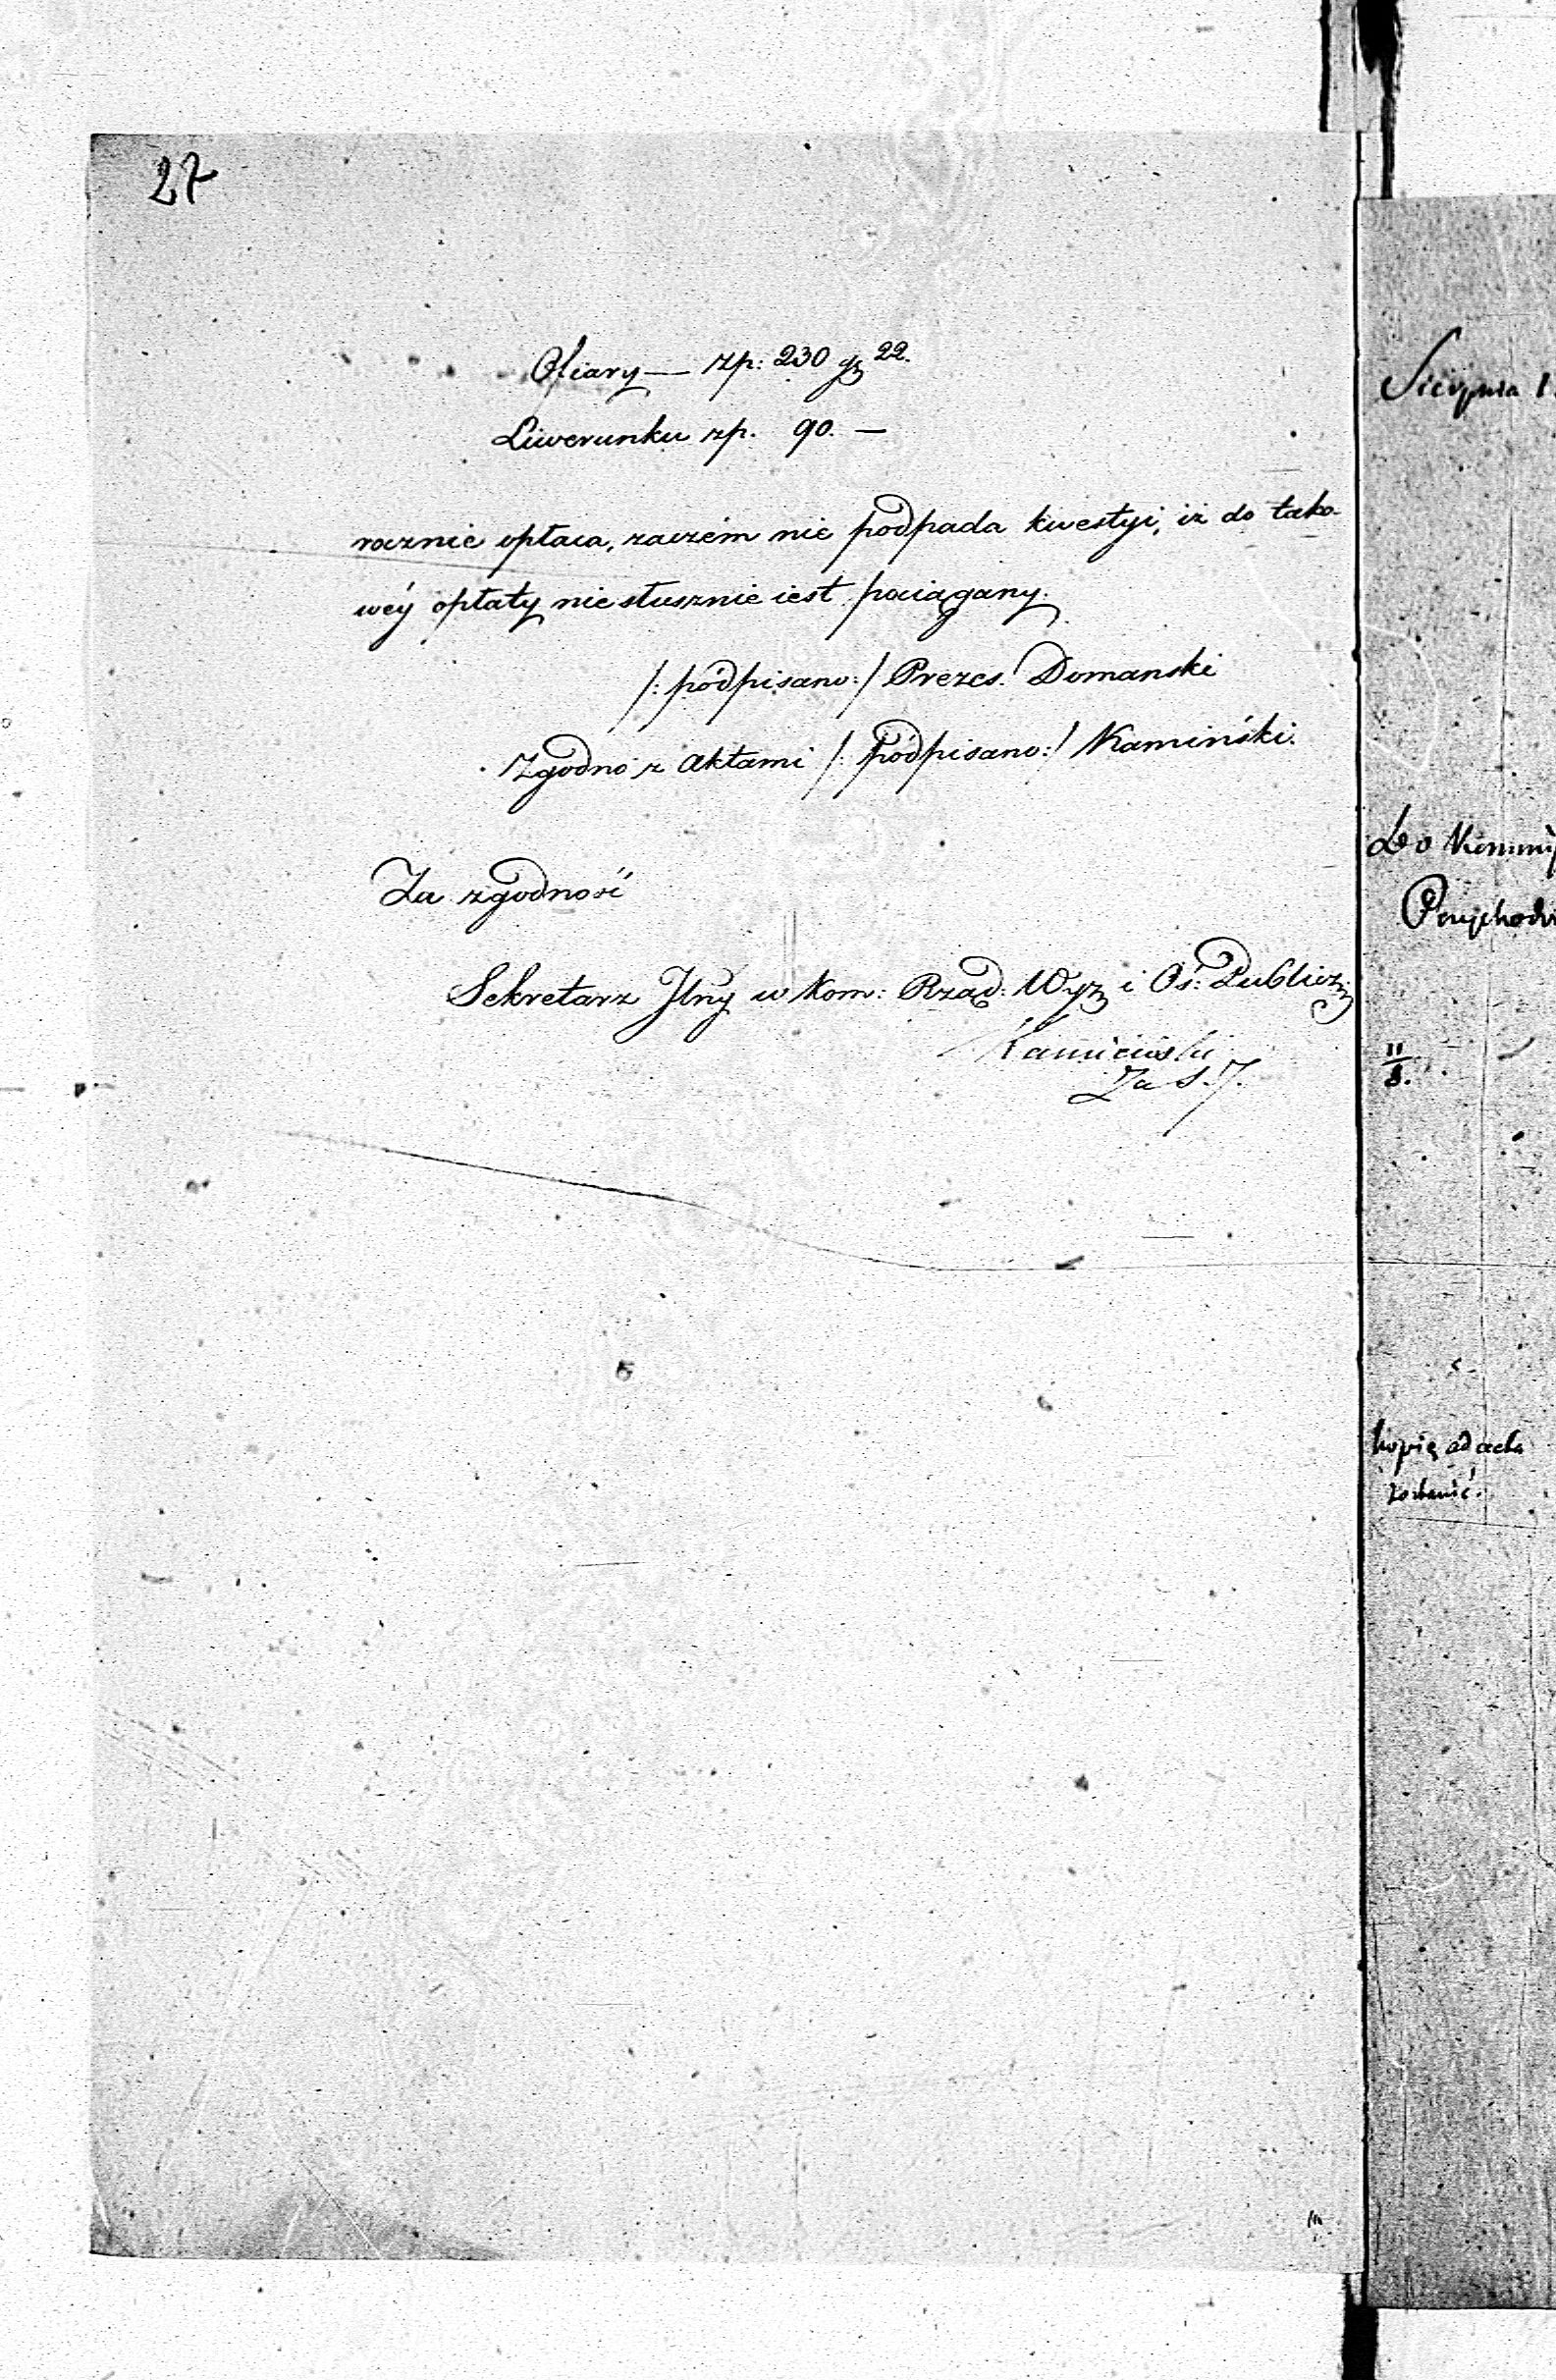 27
Ofiary — zp: 230 gr 22.
Liwerunku zp. 90. —
rocznie opłaca, zaczém nie podpada kwestyi, iż do tako-
wéy opłaty niesłusznie iest pociągany.
/: podpisano :/ Prezes. Domanski
Zgodno z Aktami /: podpisano :/ Kamiński.
Za zgodność
Sekretarz Jlny w Kom: Rząd: Wyz i Oś: Publicz:
Za S. J.
Sierpnia 1
Do Kommis
Przychod
11/8.
kopię ad acta
zostawić.